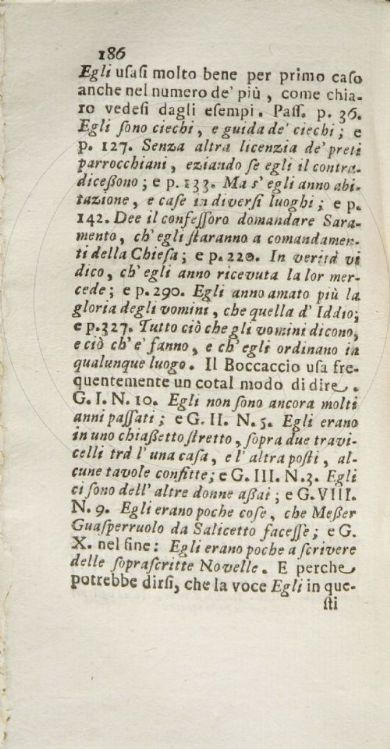 186
Egli uſaſi molto bene per primo caſo
anche nel numero de' più, come chia-
ro vedeſi dagli eſempi. Paſſ. p. 36.
Egli ſono ciechi, e guida de' ciechi; e
p. 127. Senza altra licenzia de' preti
parrocchiani, eziando ſe egli il contra-
diceſſono; e p. 133. Ma s' egli anno abi-
tazione, e caſe in diverſi luoghi; e p.
142. Dee il confeſſoro domandare Sara-
mento, ch' egli ſtaranno a comandamen-
ti della Chieſa; e p. 220. In verità vi
dico, ch' egli anno ricevuta la lor mer-
cede; e p. 290. Egli anno amato più la
gloria degli vomini, che quella d' Iddio;
e p. 327. Tutto ciò che gli vomini dicono,
e ciò ch' e' fanno, e ch' egli ordinano in
qualunque luogo. Il Boccaccio uſa fre-
quentemente un cotal modo di dire.
G. I. N. 10. Egli non ſono ancora molti
anni paſſati; e G. II. N. 5. Egli erano
in uno chiaſſetto ſtretto, ſopra due travi-
celli trà l' una caſa, e l' altra poſti, al-
cune tavole confitte; e G. III. N. 3. Egli
ci ſono dell' altre donne aſſai; e G. VIII.
N. 9. Egli erano poche coſe, che Meſſer
Guaſperruolo da Salicetto faceſſe; e G.
X. nel fine: Egli erano poche a ſcrivere
delle ſopraſcritte Novelle. E perche
potrebbe dirſi, che la voce Egli in que-
ſti